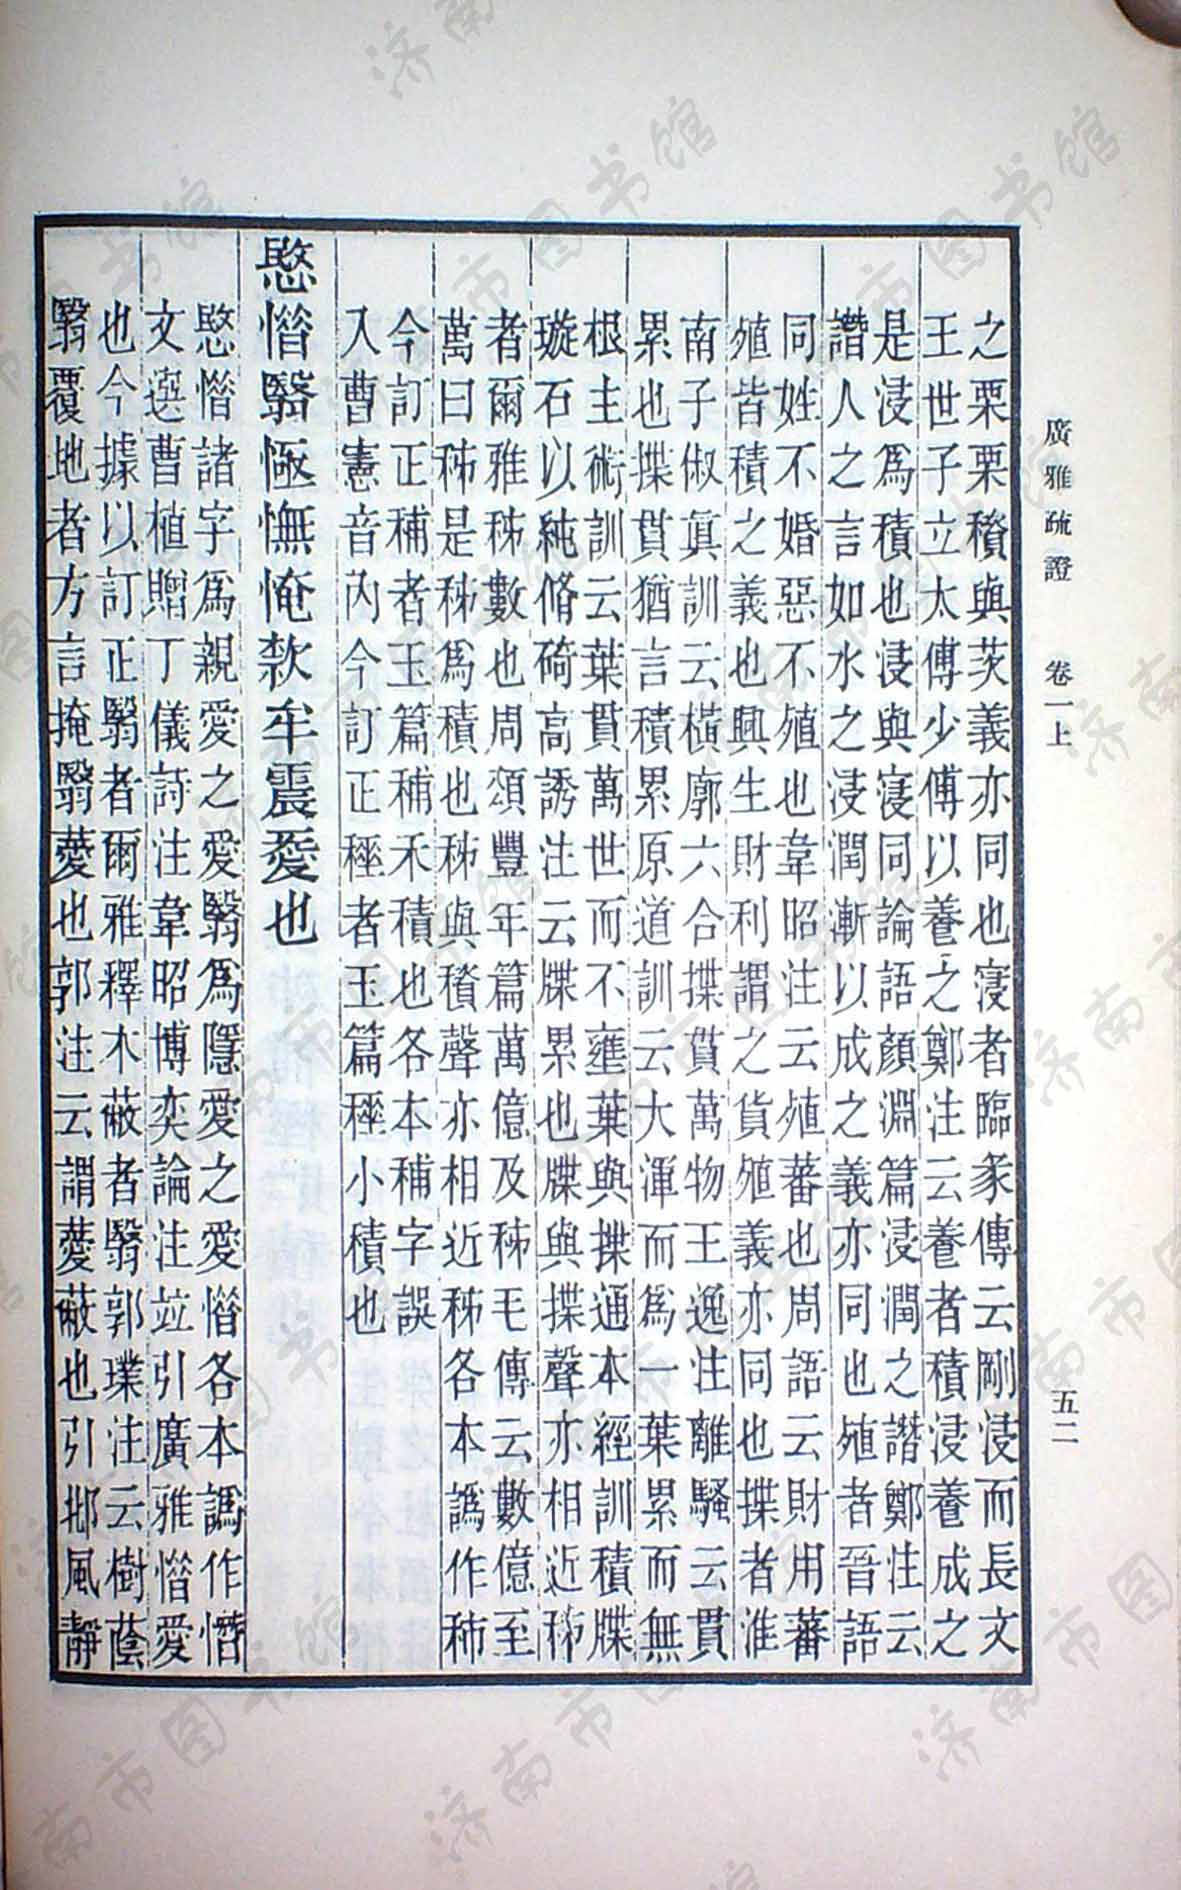 廣雅疏證　卷一上　五二
之栗栗積與茨義亦同也寖者臨彖傳云剛浸而長文
王世子立太傅少傅以養之鄭注云養者積浸養成之
是浸爲積也浸與寖同論語顏淵篇浸潤之譖鄭注云
譖人之言如水之浸潤漸以成之義亦同也殖者晉語
同姓不婚惡不殖也韋昭注云殖蕃也周語云財用蕃
殖皆積之義也興生財利謂之貨殖義亦同也揲者淮
南子俶眞訓云橫廓六合揲貫萬物王逸注離騷云貫
累也揲貫猶言積累原道訓云大渾而爲一葉累而無
根主術訓云葉貫萬世而不壅葉與揲通本經訓積牒
璇石以純脩碕高誘注云牒累也牒與揲聲亦相近秭
者爾雅秭數也周頌豐年篇萬億及秭毛傳云數億至
萬曰秭是秭爲積也秭與積聲亦相近秭各本譌作秭
今訂正稫者玉篇稫禾積也各本稫字誤
入曹憲音內今訂正秷者玉篇秷小積也
愍惜翳㥛憮㤿㱂牟震薆也
愍惜諸字爲親愛之愛翳爲隱愛之愛惜各本譌作㥽
文選曹植贈丁儀詩注韋昭博奕論注竝引廣雅惜愛
也今據以訂正翳者爾雅釋木蔽者翳郭璞注云樹蔭
翳覆地者方言掩翳薆也郭注云謂薆蔽也引邶風靜